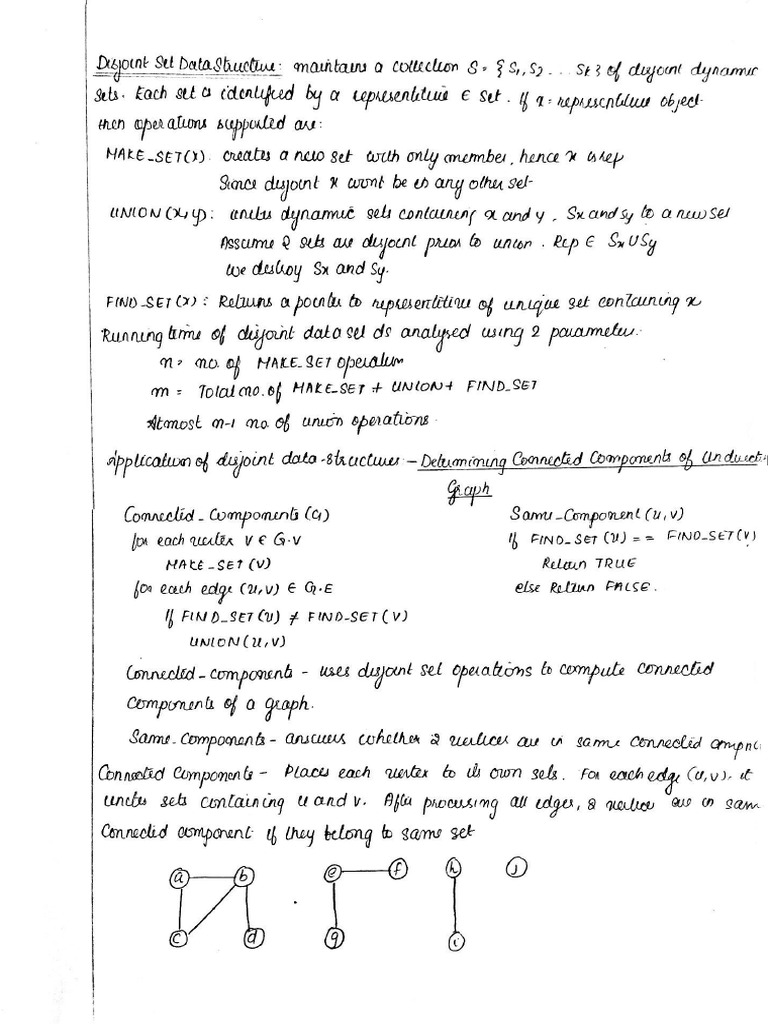 Disjoint Set Data Structure: maintains a collection S = {S1, S2 ... St} of disjoint dynamic
sets. Each set is identified by a representitive ∈ set. If x = representitive object
then operations supported are:
MAKE_SET(X) creates a new set with only member, hence x is rep
Since disjoint x wont be in any other set
UNION(x,y): unites dynamic sets containing x and y, Sx and Sy to a new set
Assume 2 sets are disjoint prior to union. Rep ∈ Sx ∪ Sy
We destroy Sx and Sy.
FIND_SET(X): Returns a pointer to representitive of unique set containing x
Running time of disjoint data set ds analysed using 2 parameter:
n = no. of MAKE_SET operation
m = Total no. of MAKE_SET + UNION + FIND_SET
Atmost n-1 no. of union operations.
Application of disjoint data-structures - Determining Connected Components of Undirect
Graph
Connected_Components (G)
for each vertex V ∈ G.V
MAKE_SET (V)
for each edge (u,v) ∈ G.E
If FIND_SET(U) ≠ FIND_SET(V)
UNION(U,V)
Same_Component (U,V)
If FIND_SET (U) == FIND_SET(V)
Return TRUE
else Return FALSE.
Connected_components - uses disjoint set operations to compute connected
Components of a graph.
Same_Components - answers whether 2 vertices are in same connected compnt
Connected Components - Places each vertex to its own sets. For each edge (U,V), it
unites sets containing u and v. After processing all edges, 2 vertice are in sam
Connected component if they belong to same set
a b e f h j
c d g i